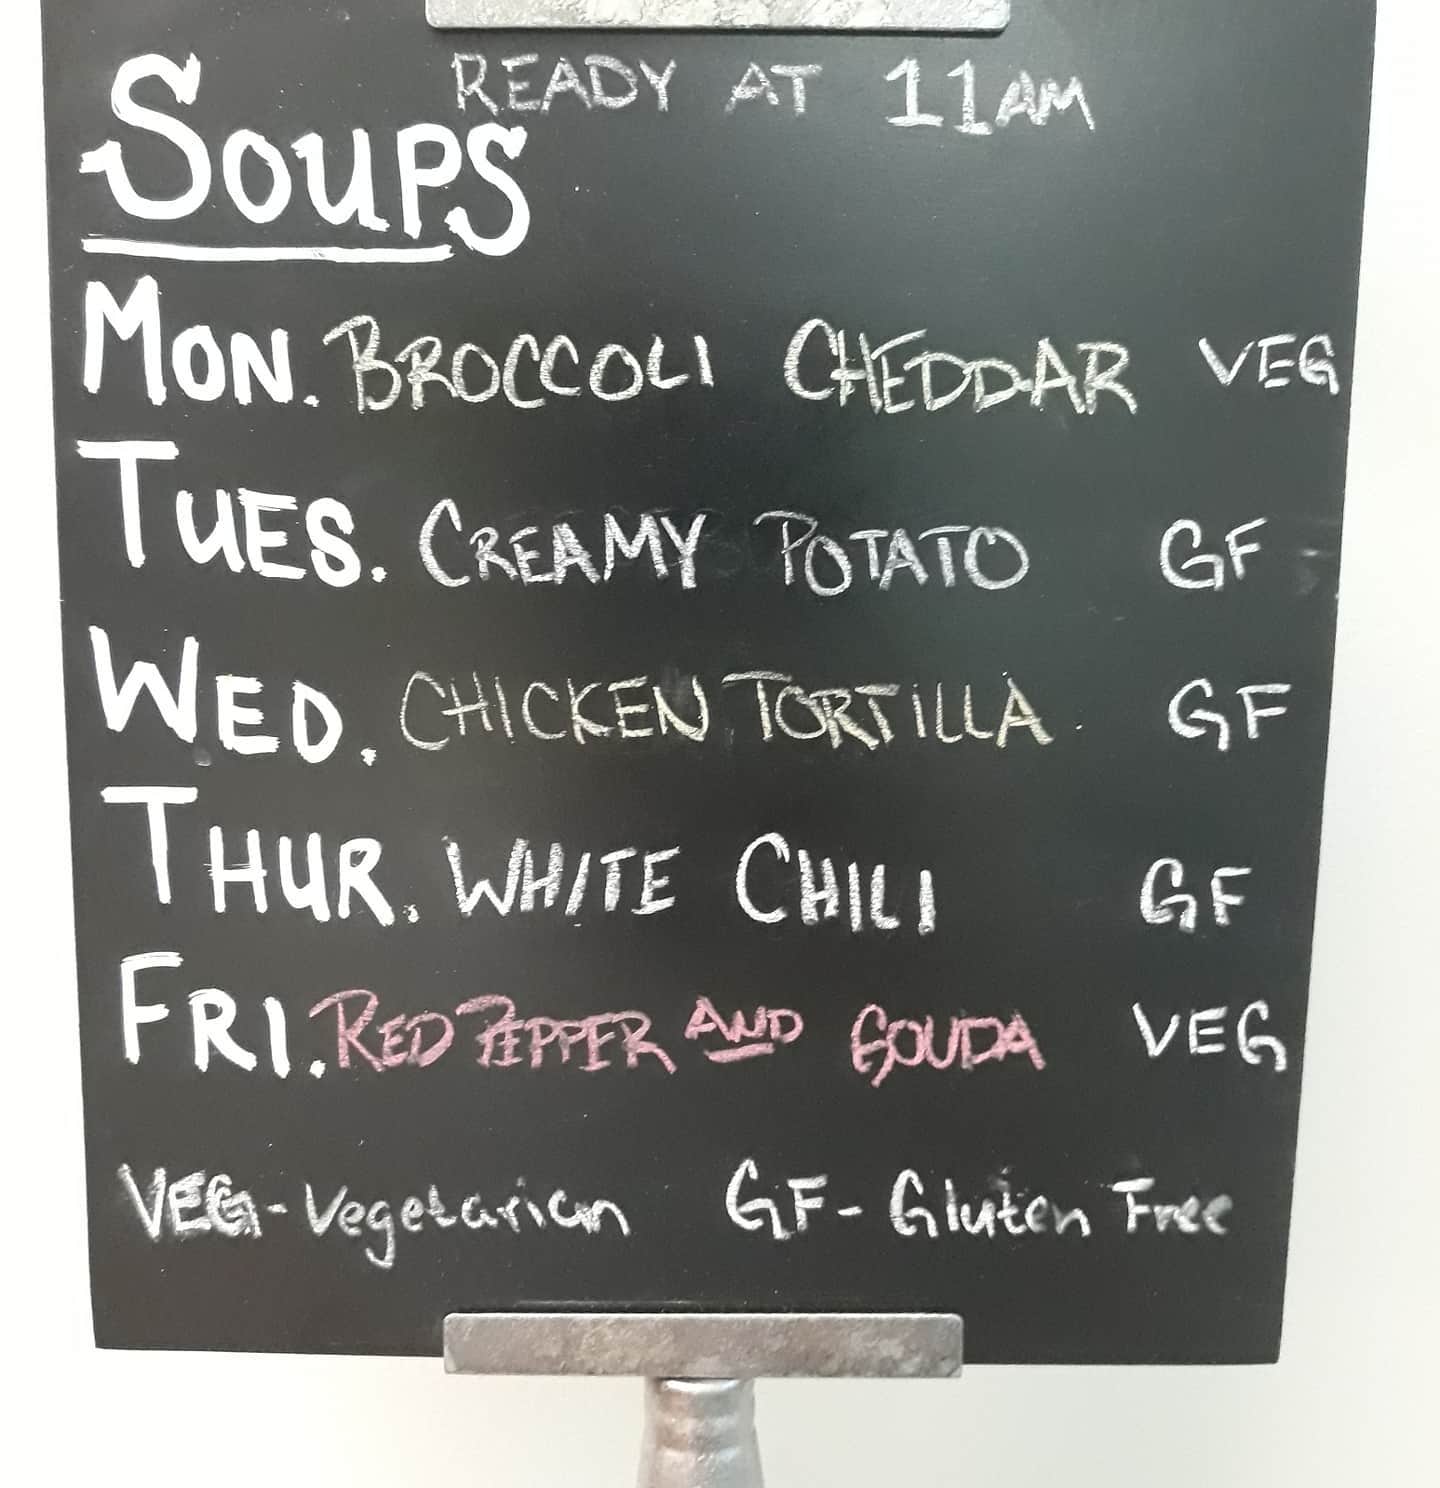 READY AT 11AM
SOUPS
MON. BROCCOLI CHEDDAR VEG
TUES. CREAMY POTATO GF
WED. CHICKEN TORTILLA. GF
THUR. WHITE CHILI GF
FRI. RED PEPPER AND GOUDA VEG
VEG-Vegetarian GF-Gluten Free